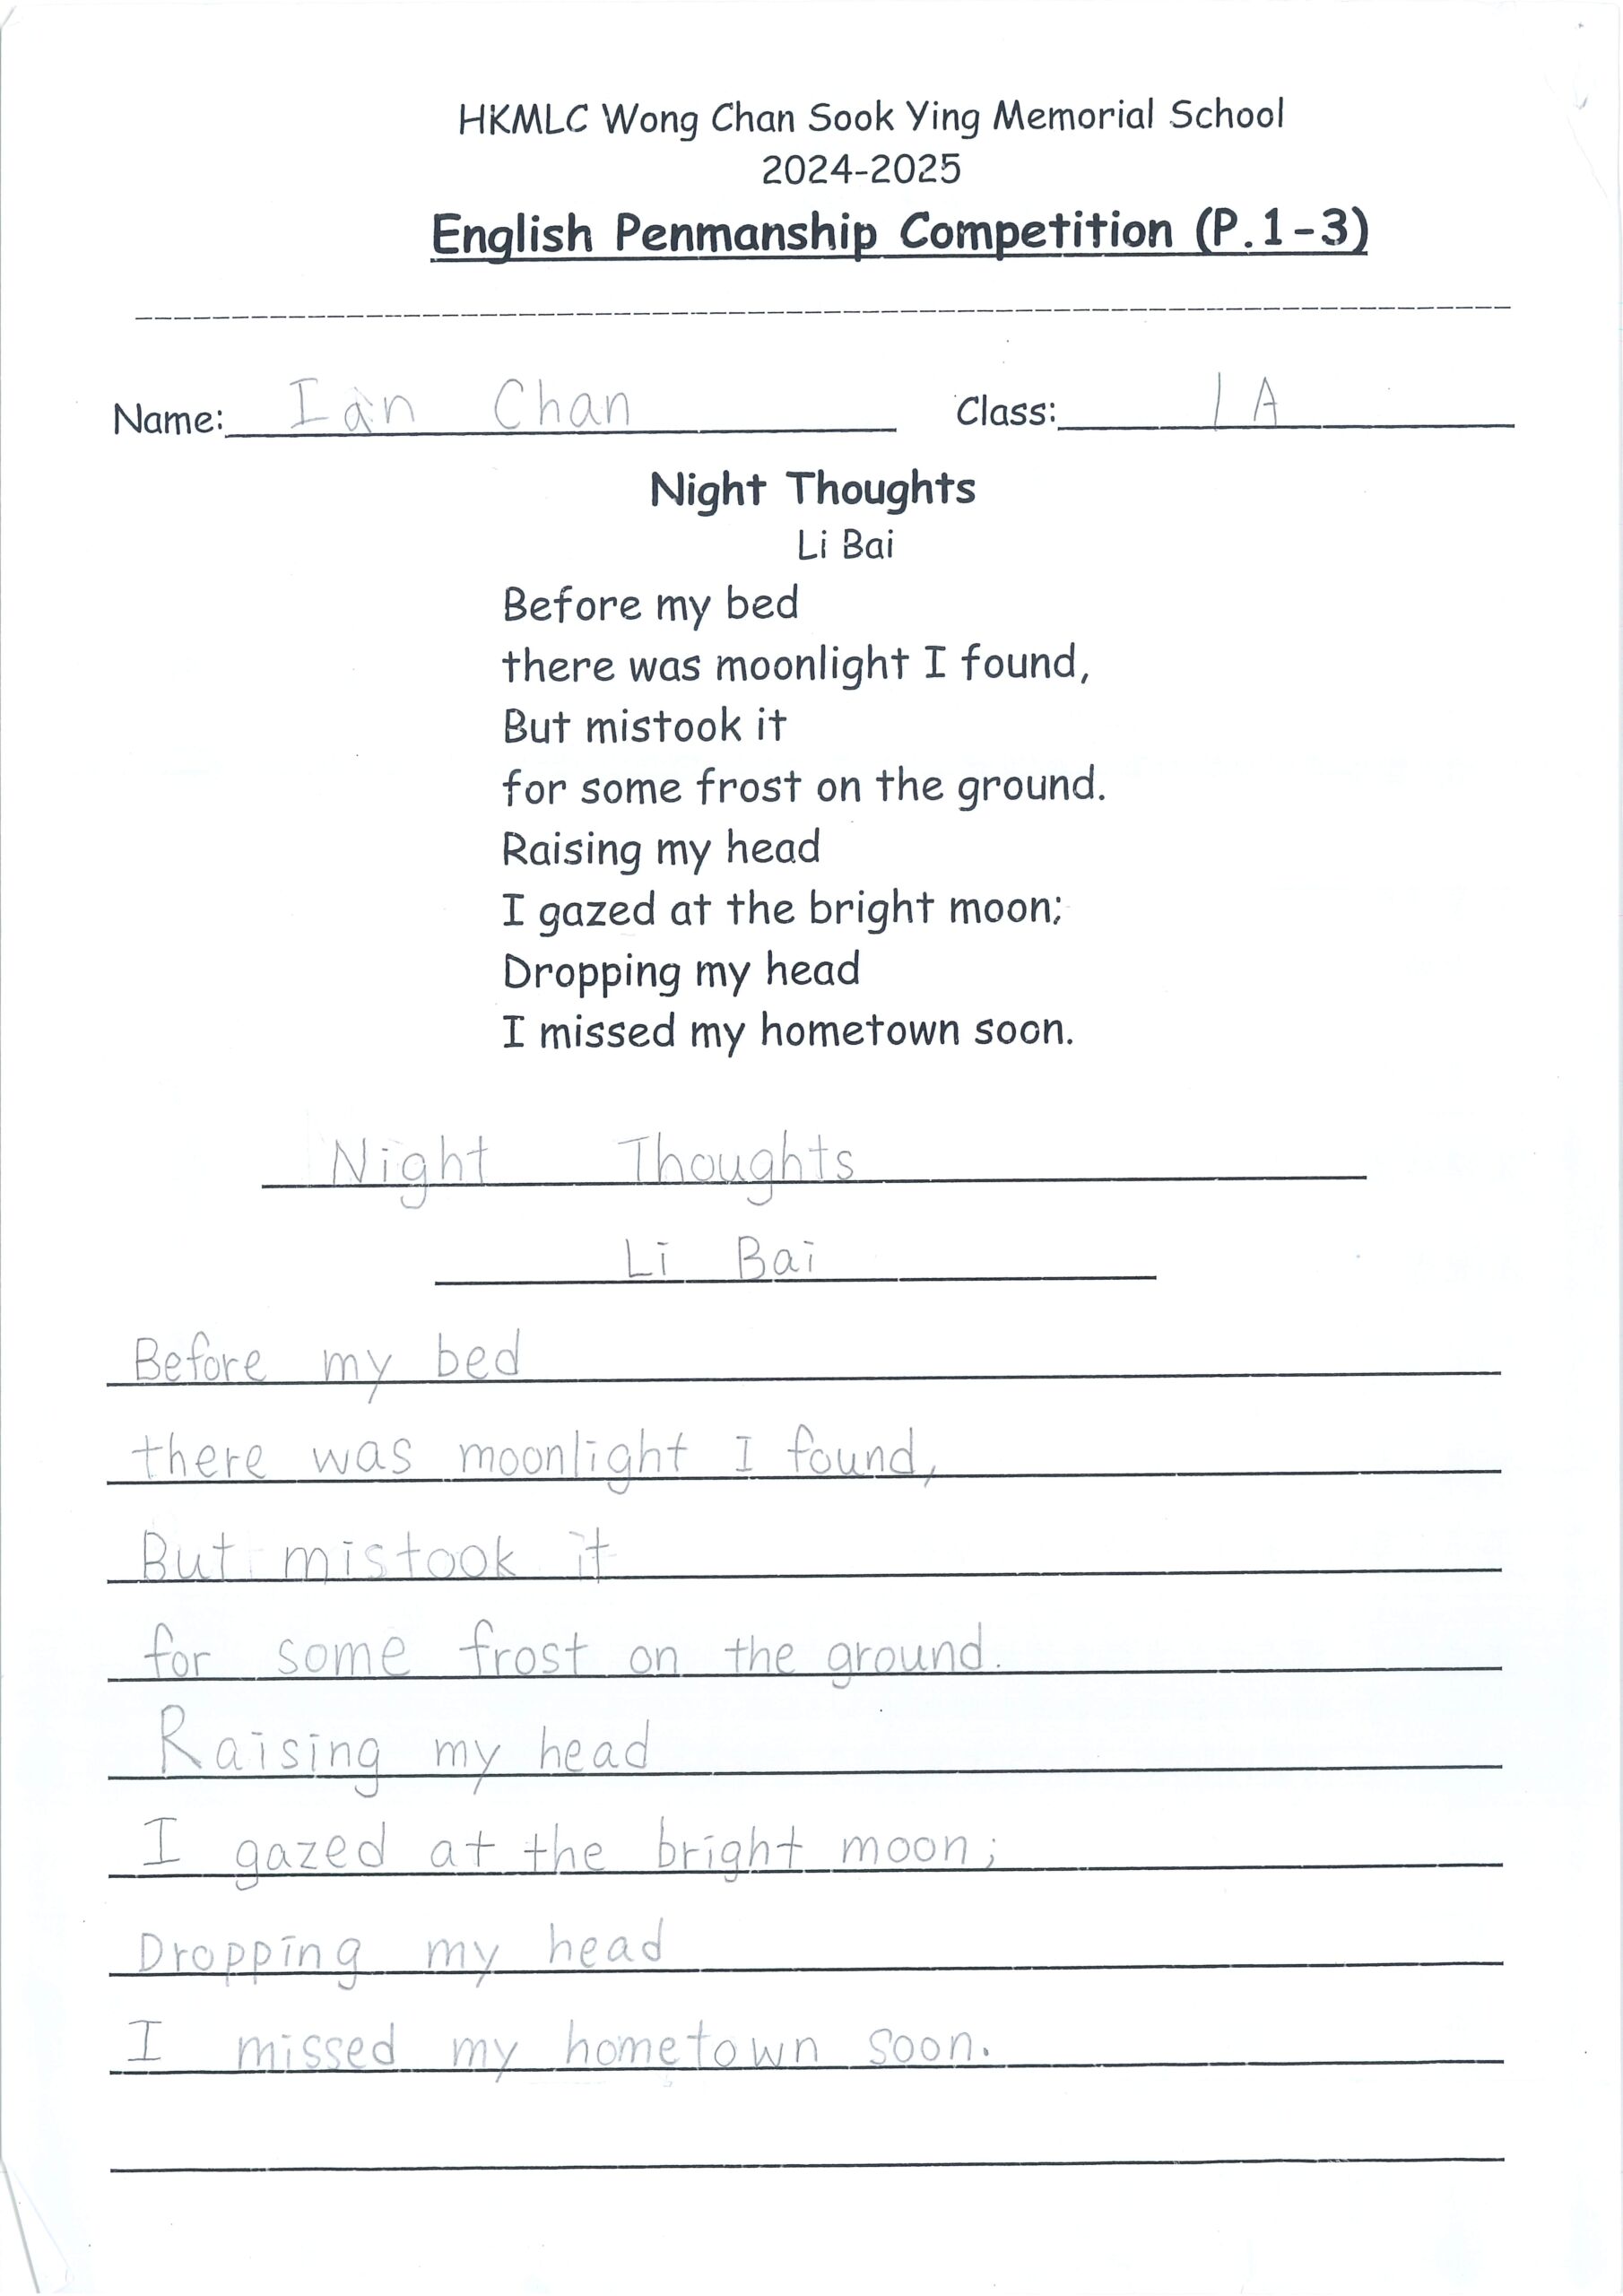 HKMLC Wong Chan Sook Ying Memorial School
2024-2025
English Penmanship Competition (P.1-3)
Name: Ian Chan Class: 1A
Night Thoughts
Li Bai
Before my bed
there was moonlight I found,
But mistook it
for some frost on the ground.
Raising my head
I gazed at the bright moon;
Dropping my head
I missed my hometown soon.
Night Thoughts
Li Bai
Before my bed
there was moonlight I found,
But mistook it
for some frost on the ground.
Raising my head
I gazed at the bright moon;
Dropping my head
I missed my hometown soon.